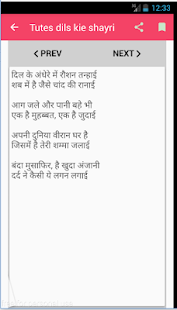 12:33
Tutes dils kie shayri
PREV NEXT
दिल के अंधेरे में रौशन तन्हाई
शब में है जैसे चांद की रानाई
आग जले और पानी बहे भी
एक है मुहब्बत, एक है जुदाई
अपनी दुनिया वीरान घर है
जिसमें है तेरी शम्मा जलाई
बंदा मुसाफिर, है खुदा अंजानी
दर्द ने कैसी ये लगन लगाई